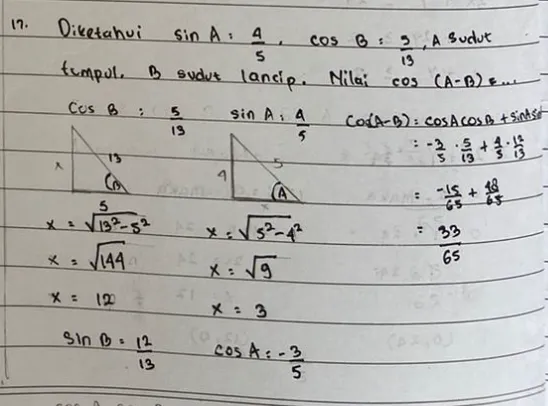 17. Diketahui sin A : 4/5, cos B : 5/13, A sudut
tumpul, B sudut lancip. Nilai cos (A-B) = ...
cos B : 5/13
x
13
B
5
x = √13²-5²
x = √144
x = 12
sin B = 12/13
sin A : 4/5
4
5
A
x
x = √5²-4²
x = √9
x = 3
cos A : -3/5
Cos(A-B) : cos A cos B + sin A sin
: -3/5 · 5/13 + 4/5 · 12/13
: -15/65 + 48/65
: 33/65